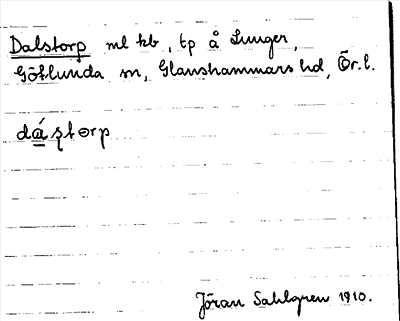 Dalstorp ml kb, tp å Lunger,
Götlunda sn, Glanshammars hd, Ör. l.
dáștorp
Jöran Sahlgren 1910.